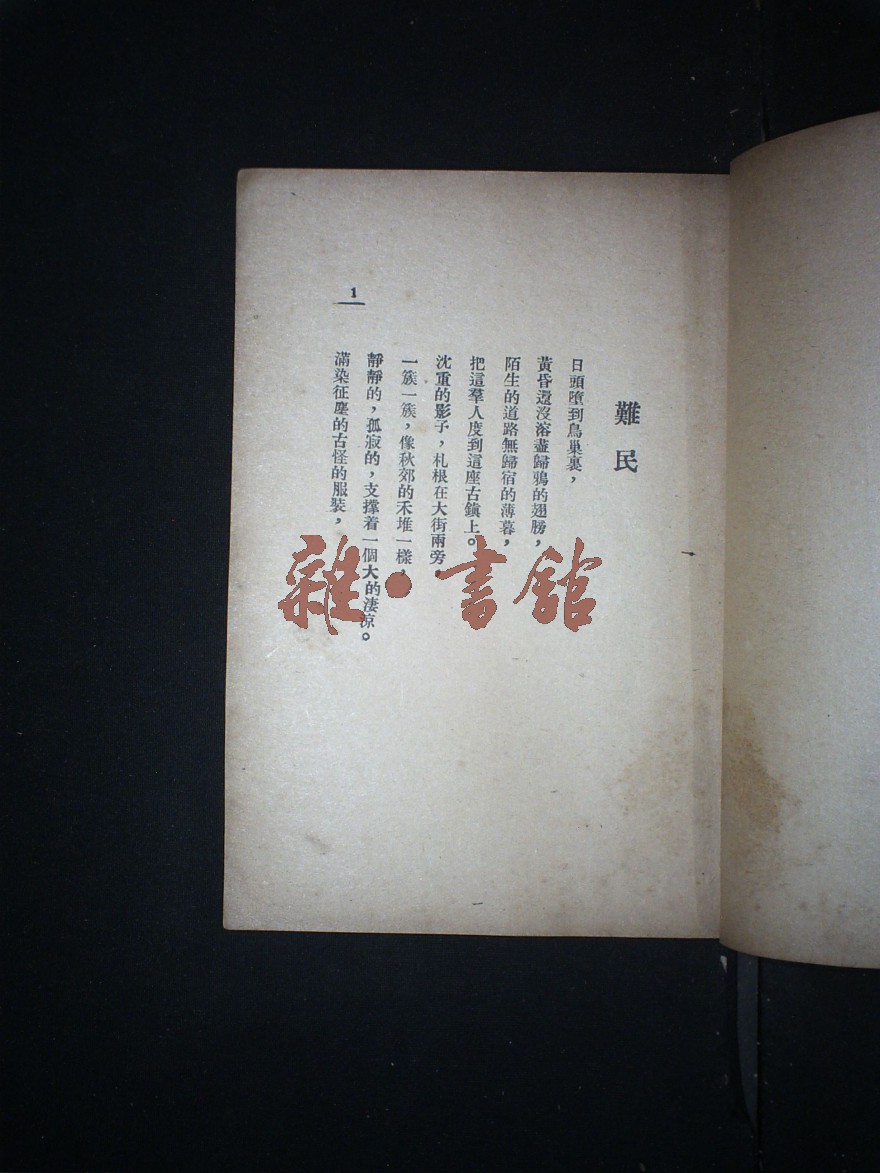 難民
日頭墮到鳥巢裏，
黃昏還沒溶盡歸鴉的翅膀，
陌生的道路無歸宿的薄暮，
把這羣人度到這座古鎭上。
沈重的影子，札根在大街兩旁，
一簇一簇，像秋郊的禾堆一樣，
靜靜的，孤寂的，支撐着一個大的凄凉。
滿染征塵的古怪的服裝，
1
雜·書館